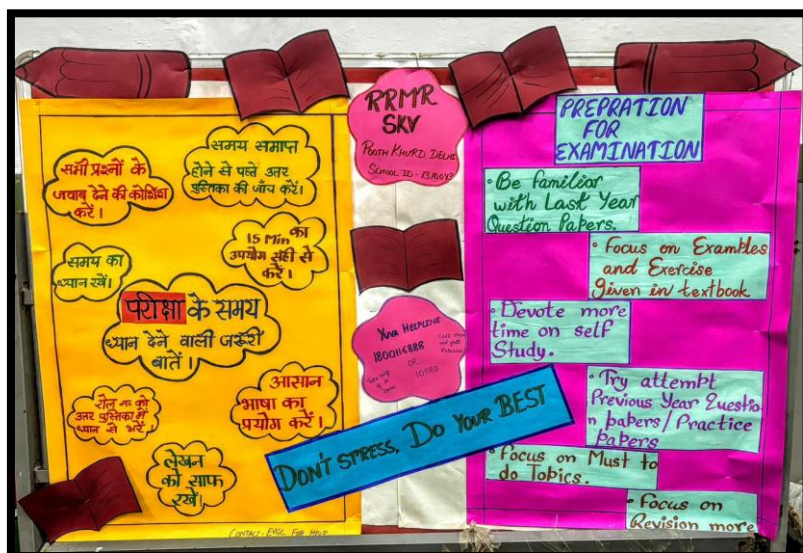 सभी प्रश्नों के
जवाब देने की कोशिश
करें।
समय समाप्त
होने से पहले उत्तर
पुस्तिका की जाँच करें।
15 Min का
उपयोग सही से
करें।
समय का
ध्यान रखें।
परीक्षा के समय
ध्यान देने वाली जरूरी
बातें।
रोल नं को
उत्तर पुस्तिका में
ध्यान से भरें
आसान
भाषा का
प्रयोग करें।
लेखन
को साफ
रखें।
CONTACT - EVGC FOR HELP
RRMR
SKV
POOTH KHURD, DELHI
SCHOOL ID -
YUVA HELPLINE
1800116888
OR
10580
DON'T STRESS, DO YOUR BEST
PREPRATION
FOR
EXAMINATION
• Be familiar
with Last Year
Question Papers.
• Focus on Examples
and Exercise
given in textbook
• Devote more
time on self
Study.
• Try attempt
Previous Year Questio
n papers/Practice
Papers
• Focus on Must to
do Topics.
• Focus on
Revision more